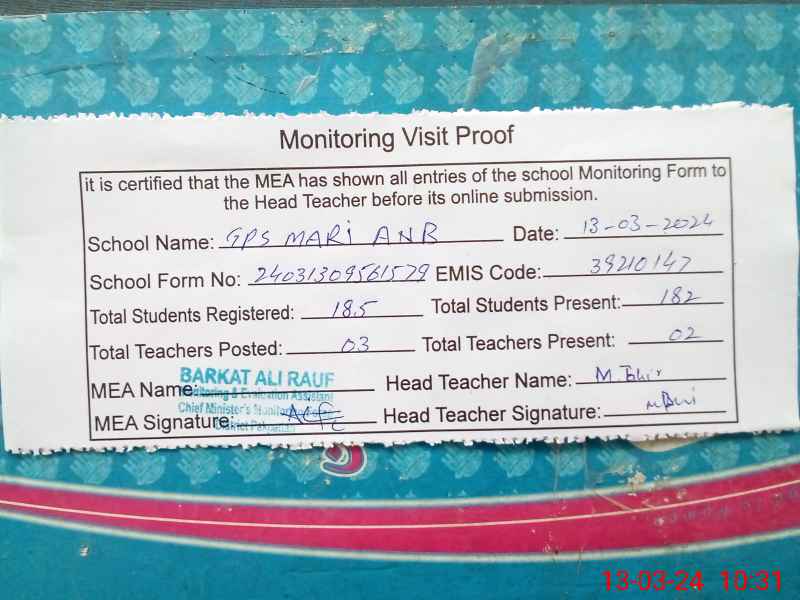 Monitoring Visit Proof
it is certified that the MEA has shown all entries of the school Monitoring Form to
the Head Teacher before its online submission.
School Name: GPS MARI ANB Date: 13-03-2024
School Form No: 24031309561579 EMIS Code: 39210147
Total Students Registered: 185 Total Students Present: 182
Total Teachers Posted: 03 Total Teachers Present: 02
BARKAT ALI RAUF
MEA Name: Head Teacher Name: M.
Monitoring & Evaluation Assistant
Chief Minister's
MEA Signature: Head Teacher Signature:
District
13-03-24 10:31